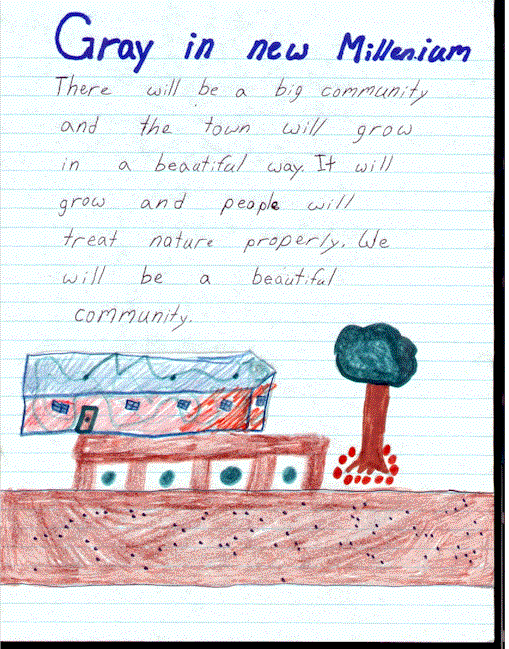 Gray in new Millenium
There will be a big community
and the town will grow
in a beautiful way. It will
grow and people will
treat nature properly. We
will be a beautiful
community.